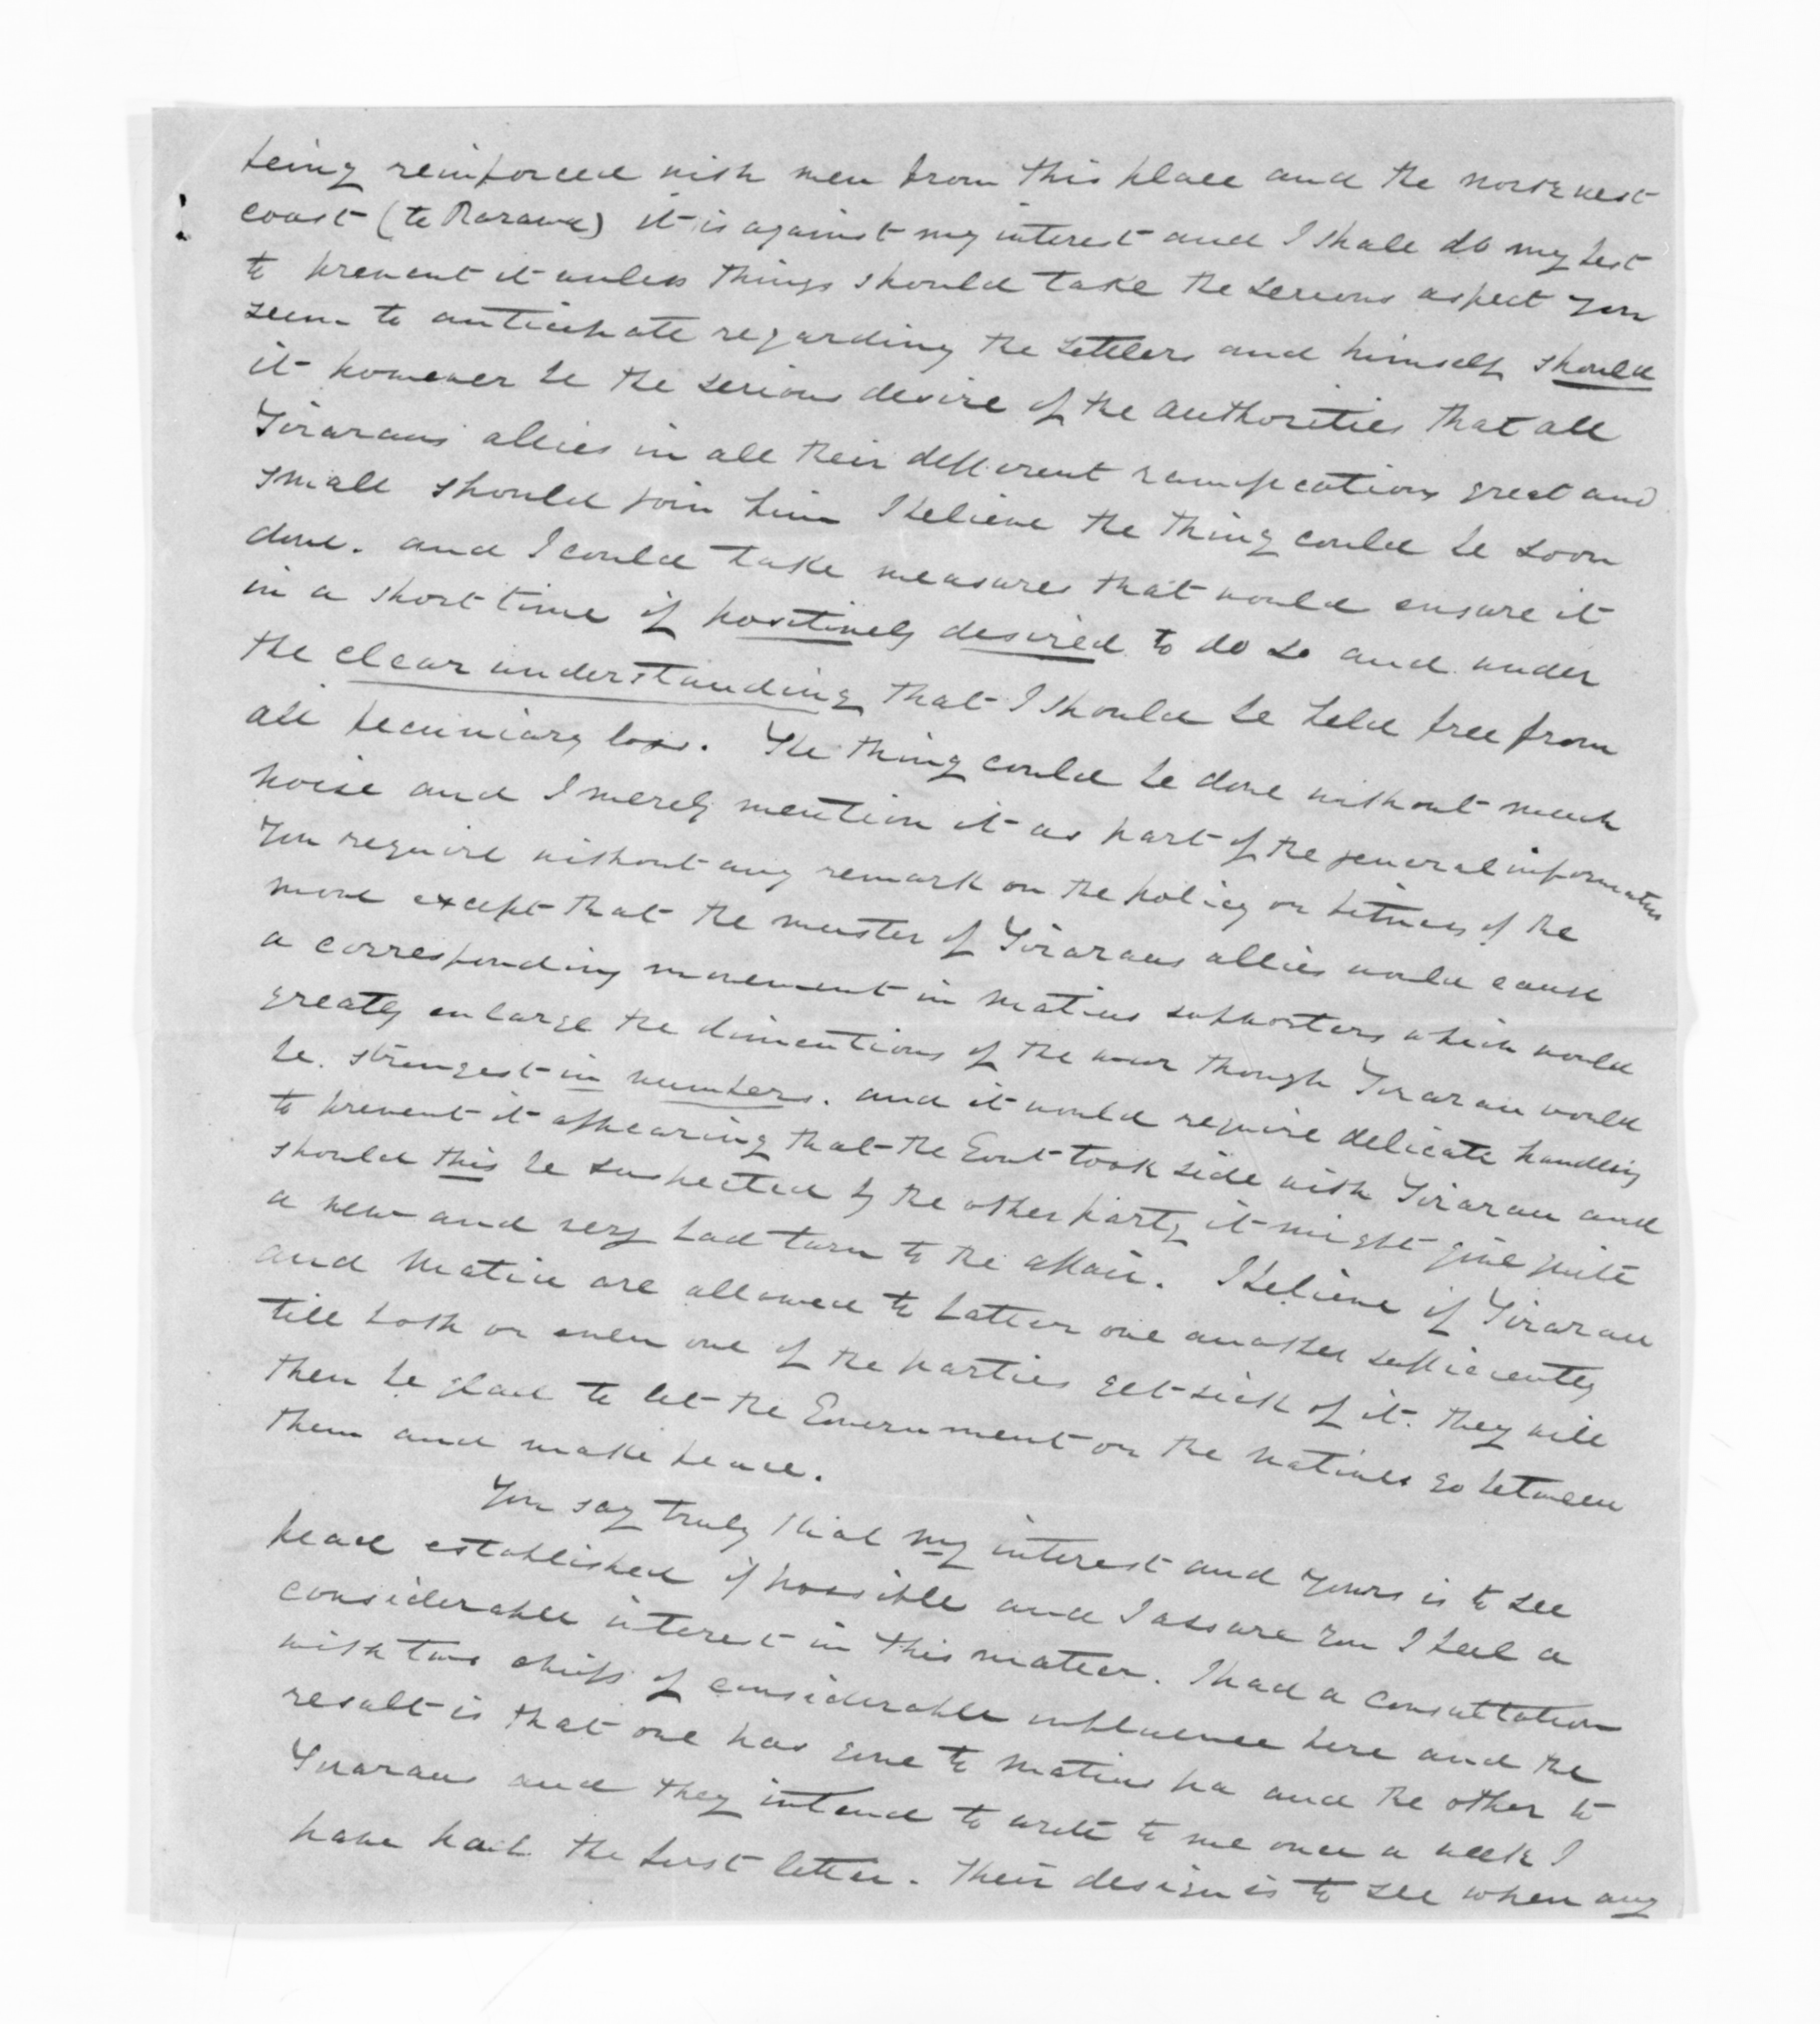 being reinforced with men from this place and the north west
coast (te Rarawa) it is against my interest and I shall do my best
to prevent it unless things should take the serious aspect you
seem to anticipate regarding the settlers and himself should
it however be the serious desire of the authorities that all
Tiraraus allies in all their different ramifications great and
small should join him I believe the thing could be soon
done. and I could take measures that would ensure it
in a short time if positively desired to do so and under
the clear understanding that I should be held free from
all pecuniary loss. The thing could be done without much
noise and I merely mention it as part of the general information
you require without any remark on the policy or fitness of the
move except that the muster of Tiraraus allies would cause
a corresponding movement in Matius supporters which would
greatly enlarge the dimentions of the war though Tirarau would
be strongest in numbers. and it would require delicate handling
to prevent it appearing that the Govt took side with Tirarau and
should this be suspected by the other party it might give quite
a new and very bad turn to the affair. I believe if Tirarau
and Matiu are allowed to batter one another sufficiently
till both or even one of the parties get sick of it. they will
then be glad to let the Government or the natives go between
them and make peace.
You say truly that my interest and yours is to see
peace established if possible and I assure you I feel a
considerable interest in this matter. I had a consultation
with two chiefs of considerable influence here and the
result is that one has gone to Matius pa and the other to
Tiraraus and they intend to write to me once a week I
have had the first letter. Their design is to see when any